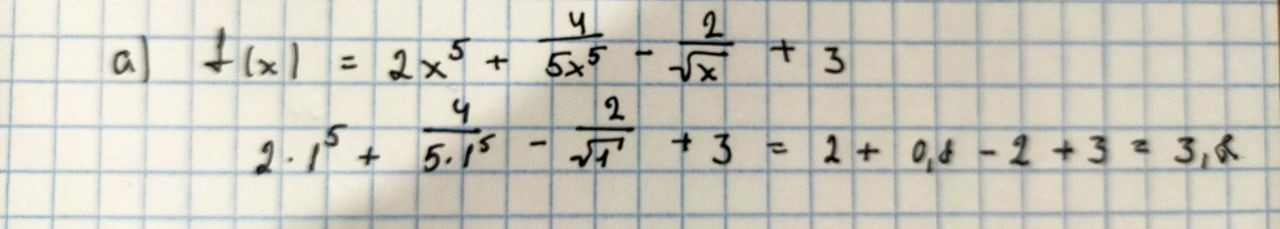 a) f(x) = 2x⁵ + 4/(5x⁵) - 2/√x + 3
2·1⁵ + 4/(5·1⁵) - 2/√1 + 3 = 2 + 0,8 - 2 + 3 = 3,8